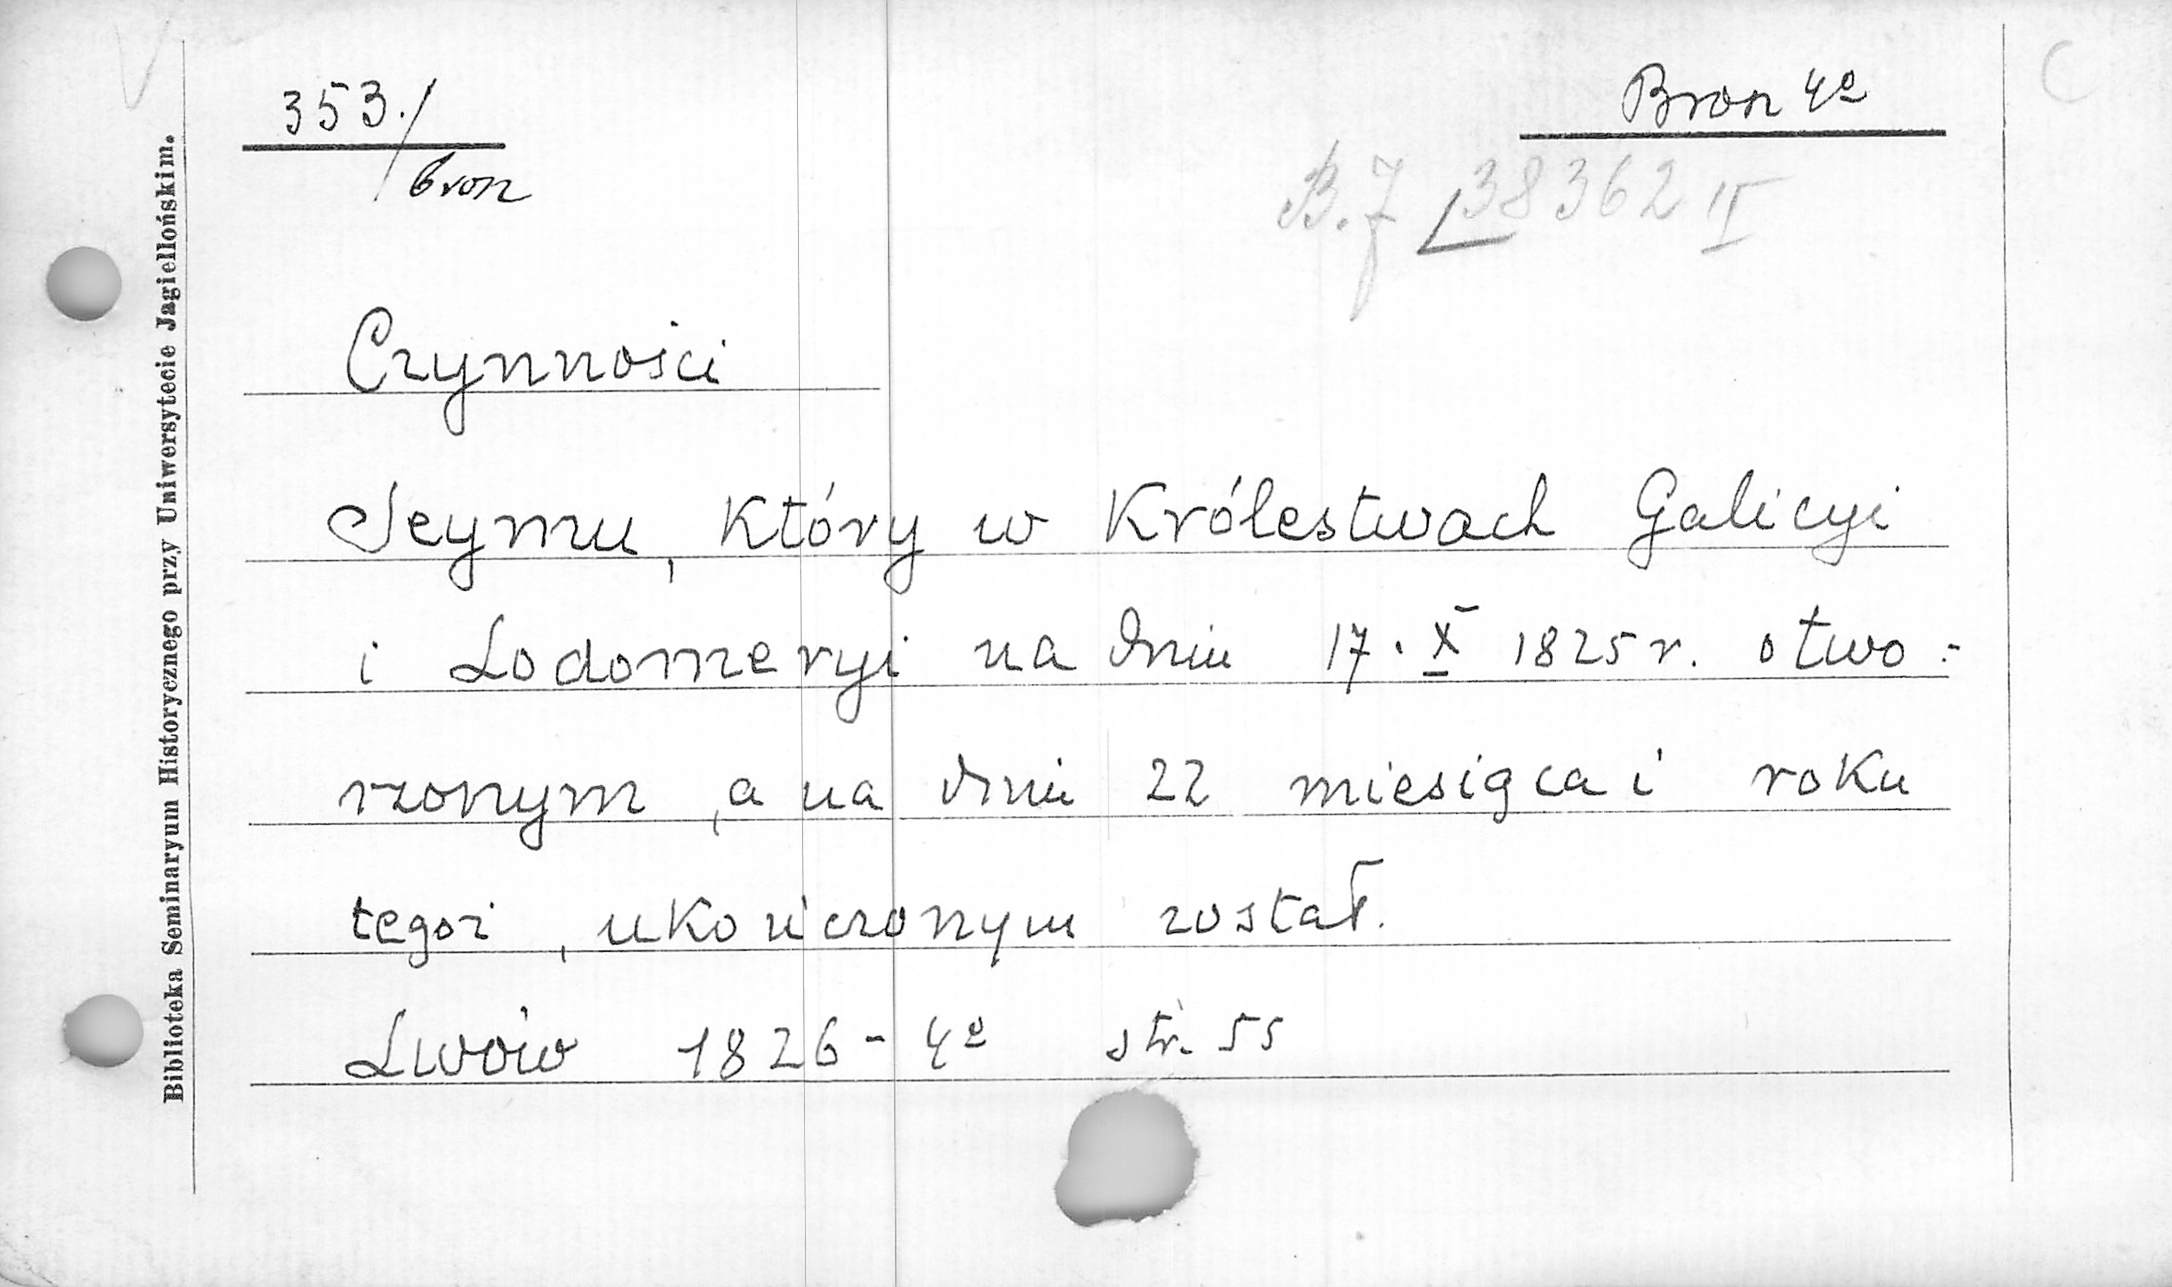 353./bron
Bron 4º
B.J 38362 II
Czynności
Seymu, który w Królestwach Galicyi
i Lodomeryi na dniu 17. X 1825 r. otwo-
rzonym, a na dniu 22 miesiąca i roku
tegoż, ukończonym został.
Lwów 1826 - 4º str. 55
Biblioteka Seminaryum Historycznego przy Uniwersytecie Jagiellońskim.